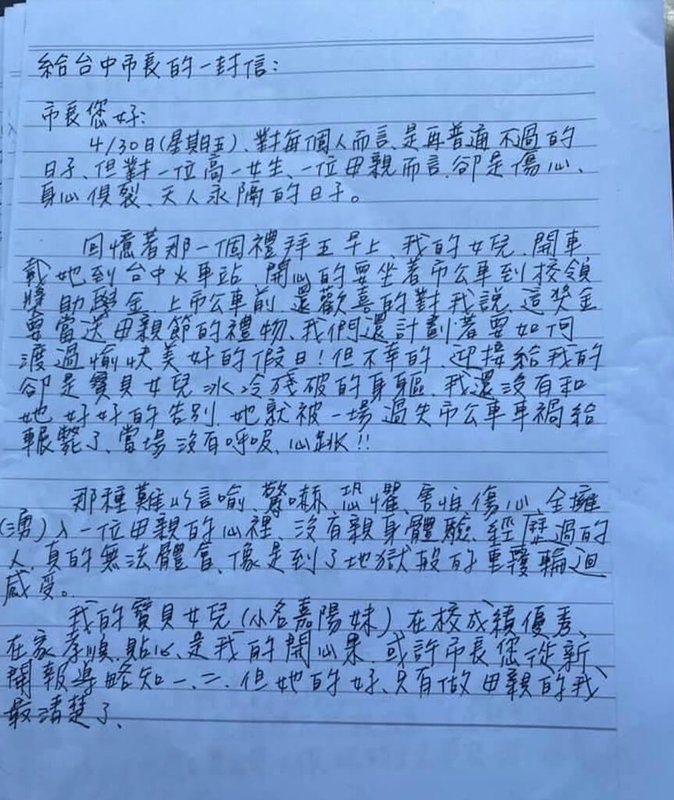 給台中市長的一封信:
市長您好:
4/30日(星期五)、對每個人而言、是再普通不過的
日子、但對一位高一女生、一位母親而言、卻是傷心、
身心俱裂、天人永隔的日子。
回憶著那一個禮拜五早上、我的女兒、開車
載她到台中火車站、開心的要坐著市公車到校領
獎助學金、上市公車前、還歡喜的對我說、這獎金
要當送母親節的禮物、我們還計劃著要如何
渡過愉快美好的假日!但不幸的、迎接給我的
卻是寶貝女兒冰冷殘破的身軀、我還沒有和
她好好的告別、她就被一場過失市公車車禍給
輾斃了、當場沒有呼吸、心跳!!
那種難以言喻、驚嚇、恐懼、害怕、傷心、全擁
(湧)入一位母親的心裡、沒有親身體驗、經歷過的
人、真的無法體會、像是到了地獄般的重覆輪迴
感受。
我的寶貝女兒(小名嘉陽妹)、在校成績優秀、
在家孝順、貼心、是我的開心果、或許市長您從新、
聞報導略知一、二、但她的好、只有做母親的我
最清楚了、